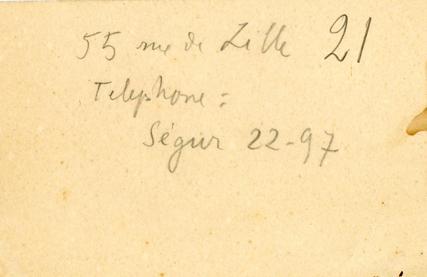 55 rue de Lille 21
Telephone :
Ségur 22-97